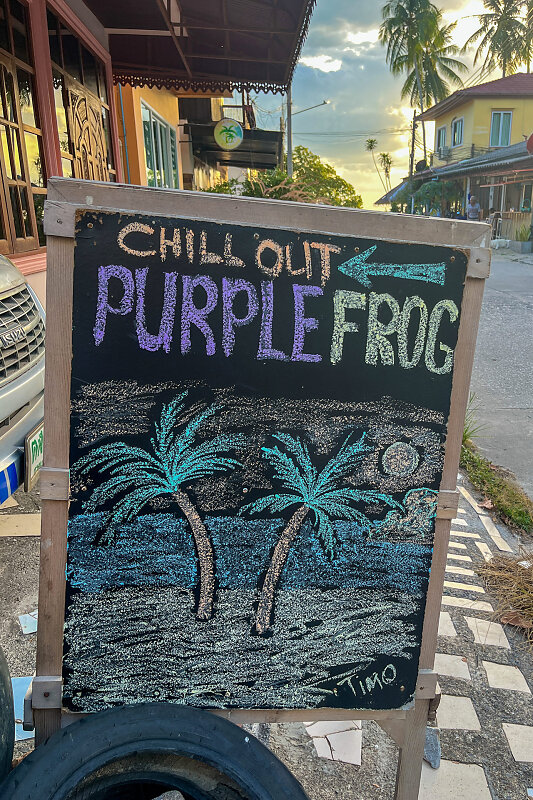 CHILL OUT
PURPLE FROG
TIMO
ISUZU